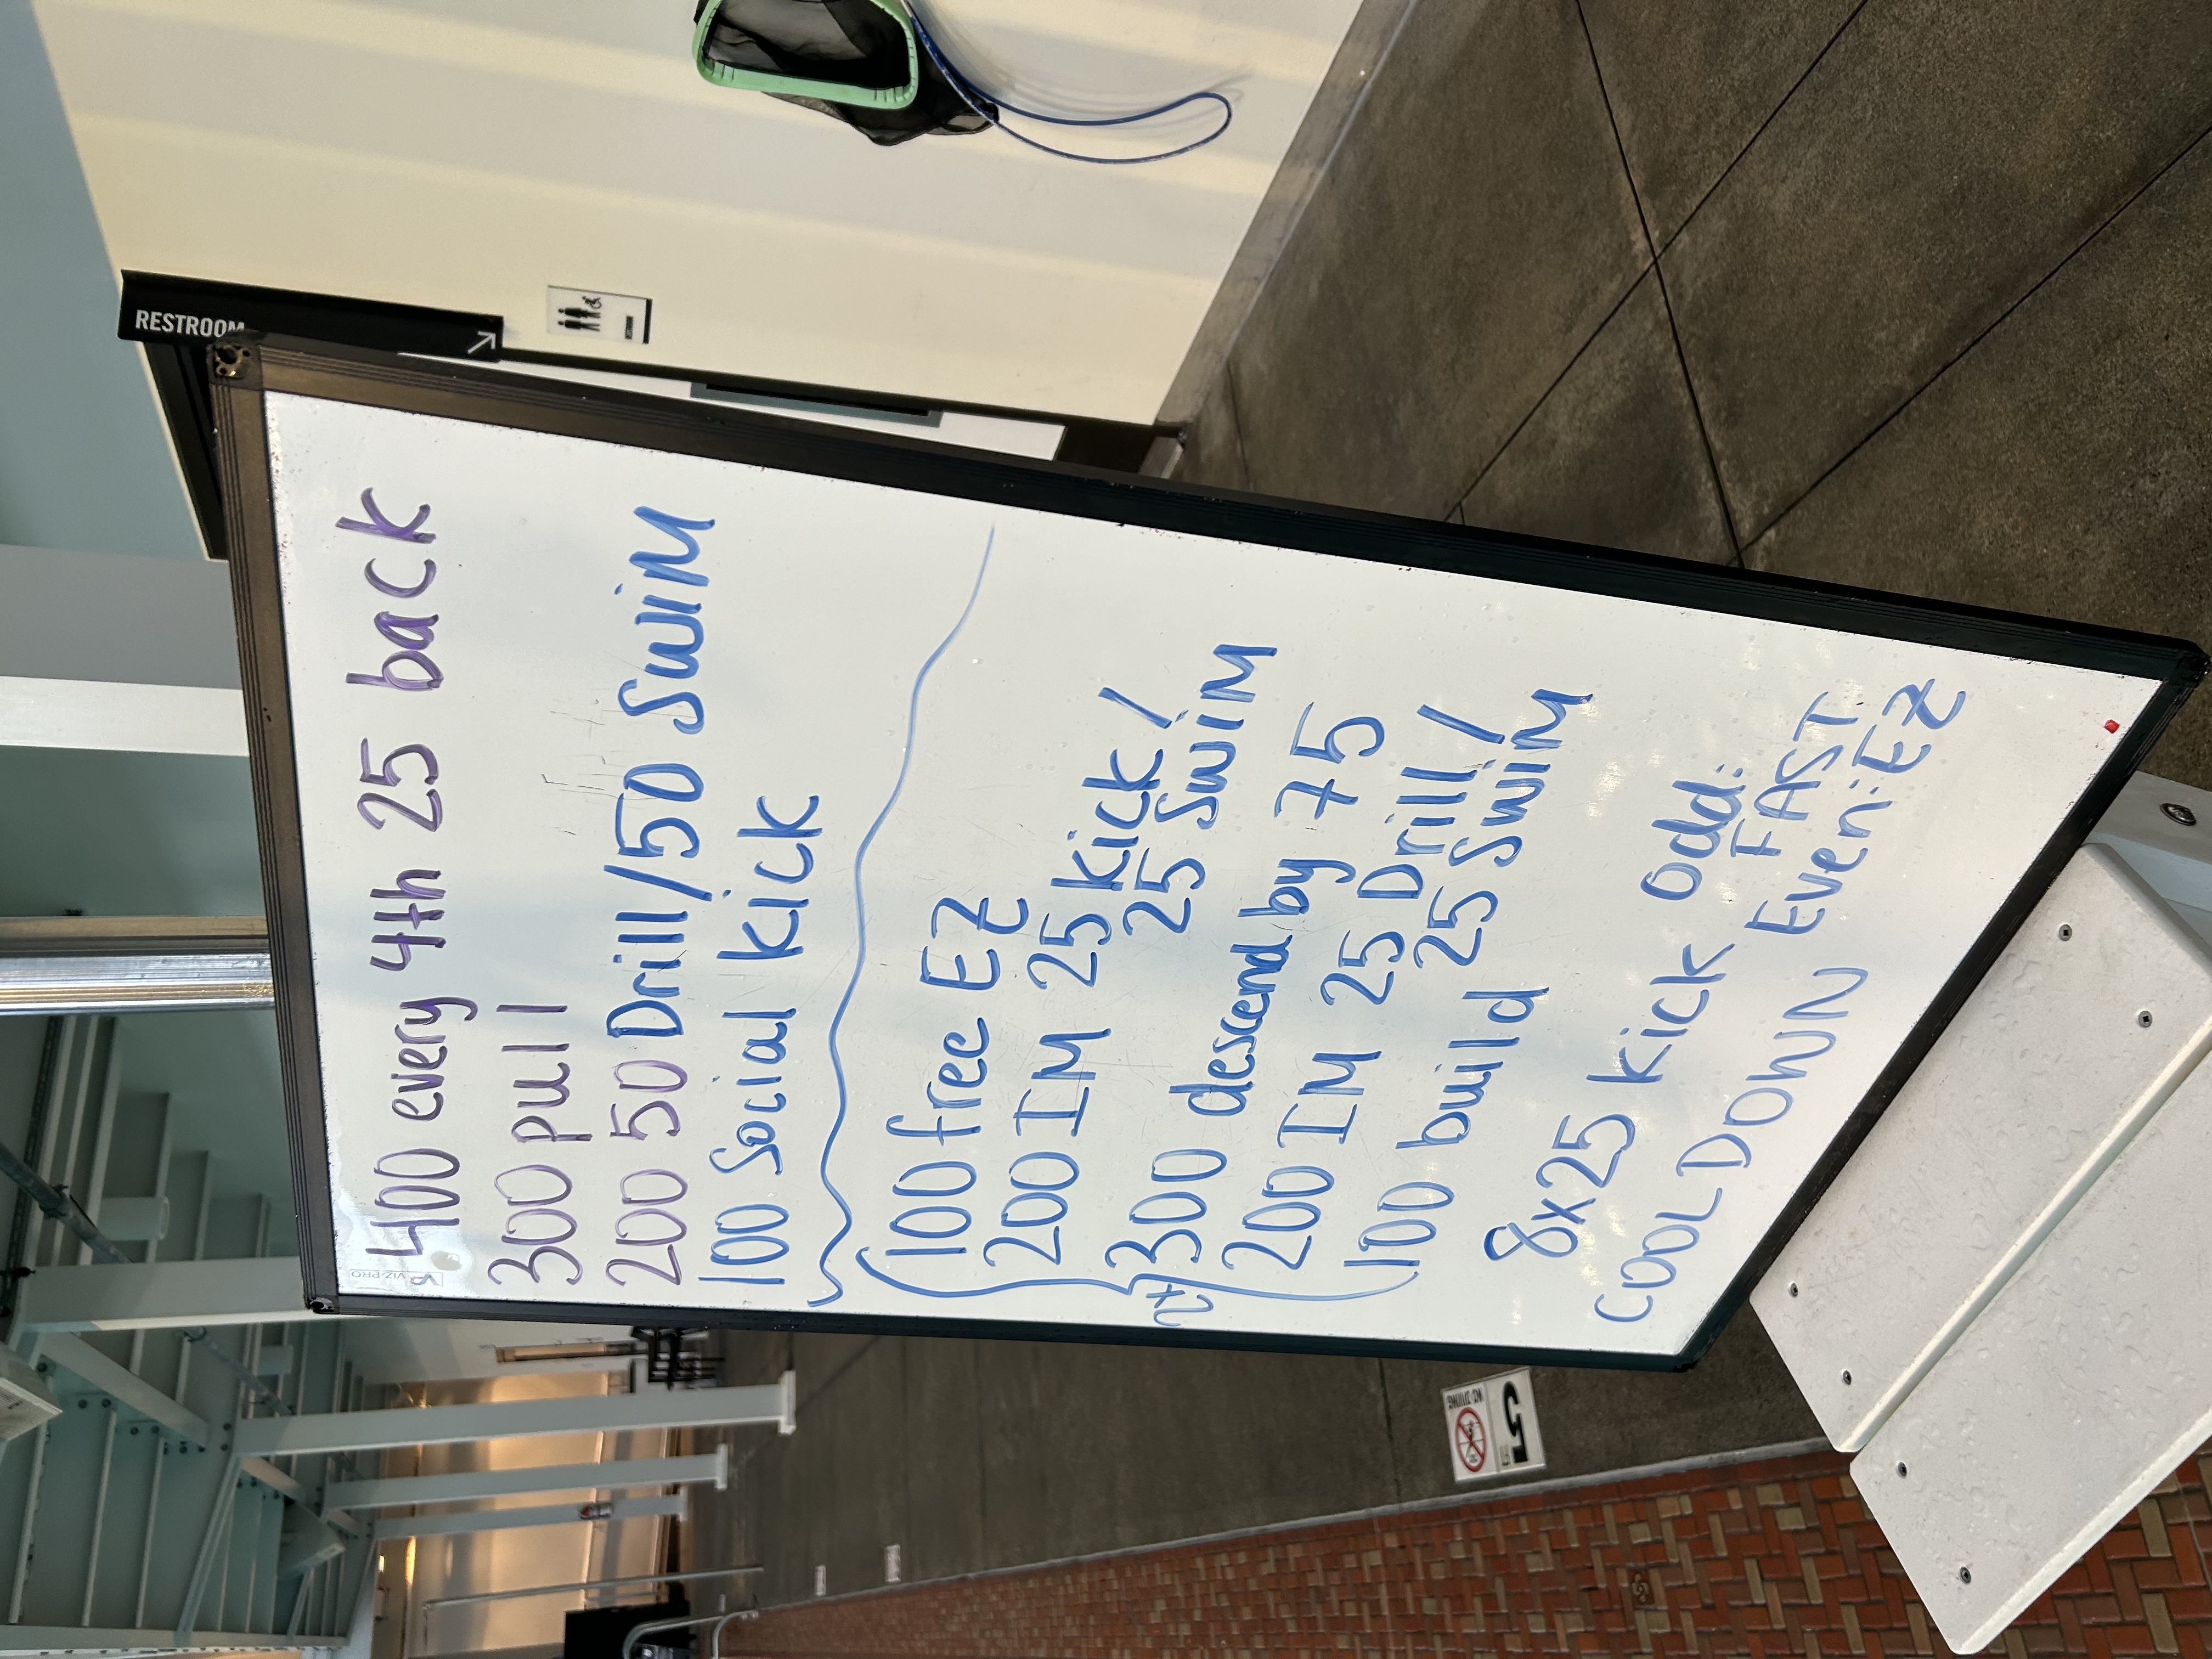 RESTROOM
VIZ-PRO
400 every 4th 25 back
300 pull
200 50 Drill/50 Swim
100 Social kick
100 free EZ
200 IM 25 kick/
25 Swim
300 descend by 75
200 IM 25 Drill/
25 Swim
100 build
8x25 kick odd:
FAST
Even: EZ
COOL DOWN
NO DIVING
5